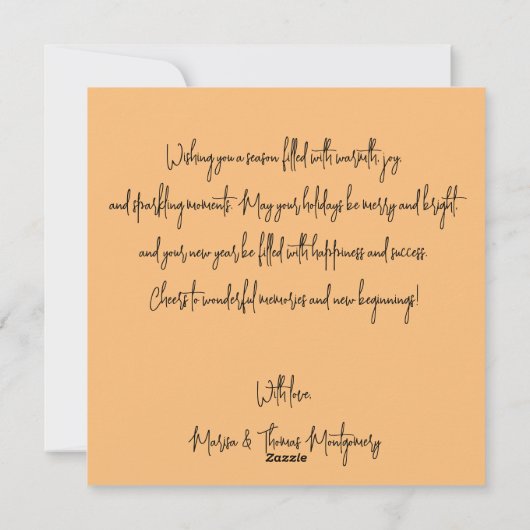 Wishing you a season filled with warmth, joy,
and sparkling moments. May your holidays be merry and bright,
and your new year be filled with happiness and success.
Cheers to wonderful memories and new beginnings!
With love,
Marisa & Thomas Montgomery
Zazzle